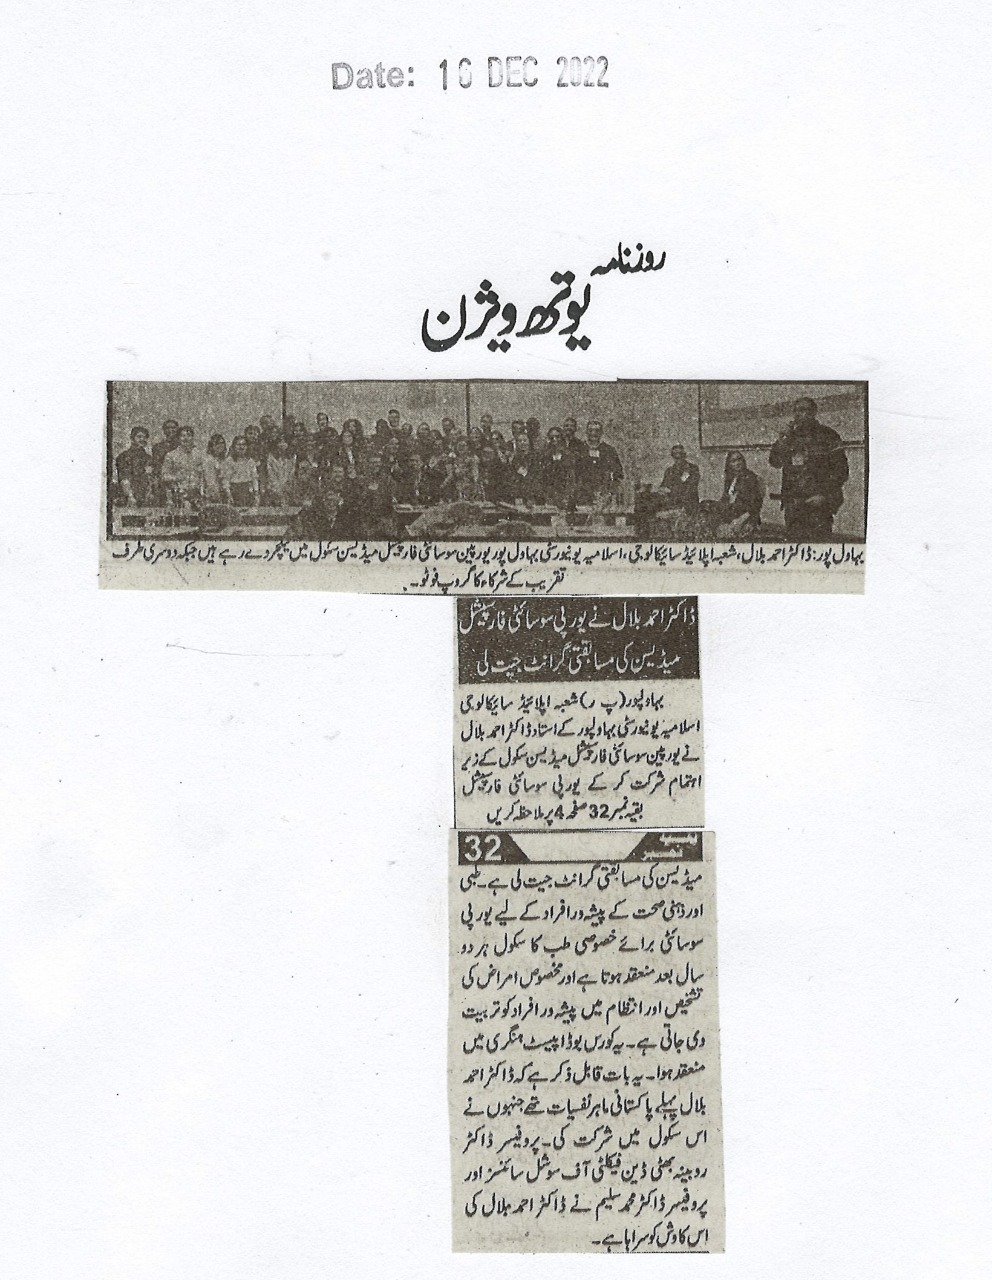 Date: 16 DEC 2022
روزنامہ
یوتھ ویژن
بہاول پور: ڈاکٹر احمد بلال، شعبہ اپلائیڈ سائیکالوجی، اسلامیہ یونیورسٹی بہاول پور یورپین سوسائٹی فار سپیشل میڈیسن سکول میں لیکچر دے رہے ہیں جبکہ دوسری طرف
تقریب کے شرکاء کا گروپ فوٹو۔
ڈاکٹر احمد بلال نے یورپی سوسائٹی فار سپیشل
میڈیسن کی مسابقتی گرانٹ جیت لی
بہاولپور (پ ر) شعبہ اپلائیڈ سائیکالوجی
اسلامیہ یونیورسٹی بہاولپور کے استاد ڈاکٹر احمد بلال
نے یورپین سوسائٹی فار سپیشل میڈیسن سکول کے زیر
اہتمام شرکت کر کے یورپی سوسائٹی فار سپیشل
بقیہ نمبر 32 صفحہ 4 پر ملاحظہ کریں
بقیہ نمبر 32
میڈیسن کی مسابقتی گرانٹ جیت لی ہے۔ طبی
اور ذہنی صحت کے پیشہ ور افراد کے لیے یورپی
سوسائٹی برائے خصوصی طب کا سکول ہر دو
سال بعد منعقد ہوتا ہے اور مخصوص امراض کی
تشخیص اور انتظام میں پیشہ ور افراد کو تربیت
دی جاتی ہے۔ یہ کورس بوڈاپیسٹ ہنگری میں
منعقد ہوا۔ یہ بات قابل ذکر ہے کہ ڈاکٹر احمد
بلال پہلے پاکستانی ماہر نفسیات تھے جنہوں نے
اس سکول میں شرکت کی۔ پروفیسر ڈاکٹر
روبینہ بھٹی ڈین فیکلٹی آف سوشل سائنسز اور
پروفیسر ڈاکٹر محمد سلیم نے ڈاکٹر احمد بلال کی
اس کاوش کو سراہا ہے۔